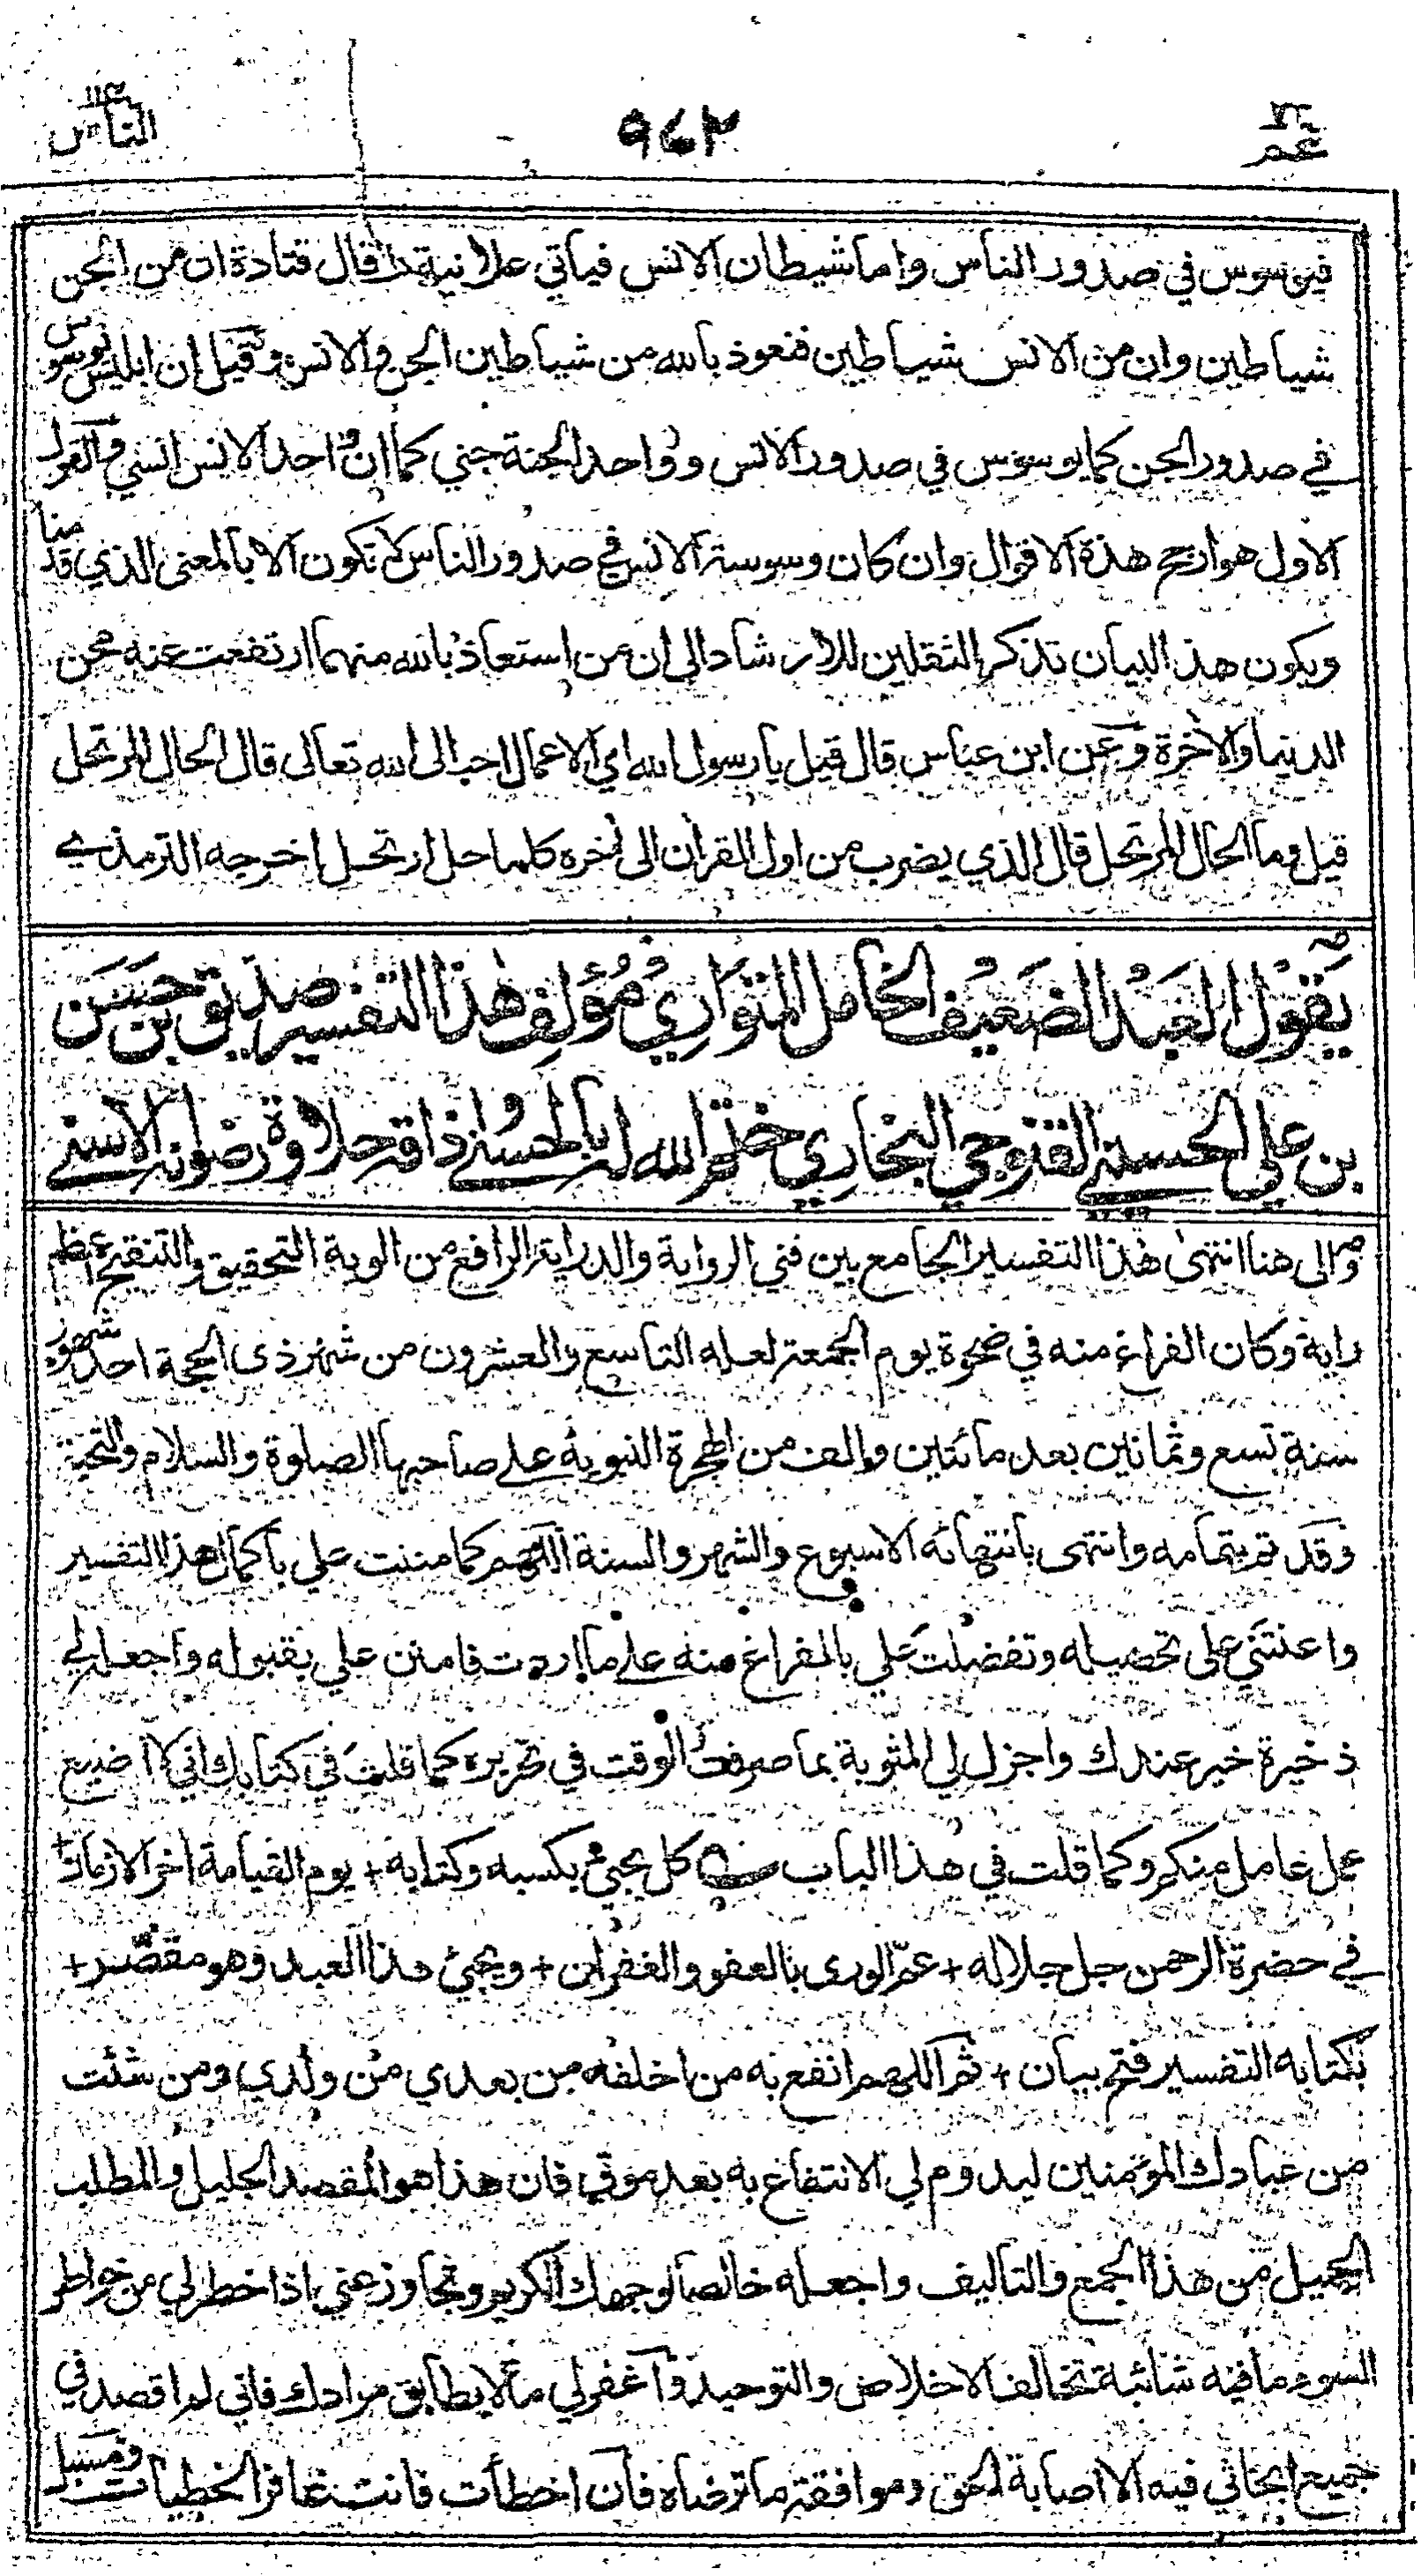 عم ٣٠
٩٤٢
الناس ١١٤
فيوسوس في صدور الناس واما شيطان الانس فياتي علانية قال قتادة ان من الجن
شياطين وان من الانس شياطين فنعوذ بالله من شياطين الجن والانس وقيل ان ابليس يوسوس
في صدور الجن كما يوسوس في صدور الانس وواحد الجنة جني كما ان واحد الانس انسي والقول
الاول هو ارجح هذه الاقوال وان كان وسوسة الانس في صدور الناس لا تكون الا بالمعنى الذي قدمنا
ويكون هذا البيان تذكر الثقلين للارشاد الى ان من استعاذ بالله منهما ارتفعت عنه محن
الدنيا والاخرة وعن ابن عباس قال قيل يا رسول الله اي الاعمال احب الى الله تعالى قال الحال المرتحل
قيل وما الحال المرتحل قال الذي يضرب من اول القران الى اخره كلما حل ارتحل اخرجه الترمذي
يقول العبد الضعيف الخامل المتواري مؤلف هذا التفسير صديق بن حسن
بن علي الحسيني القنوجي البخاري ختم الله له بالحسنى واذاقه حلاوة رضوانه الاسنى
والى هنا انتهى هذا التفسير الجامع بين فني الرواية والدراية الرافع من الوية التحقيق والتنقيح اعظم
راية وكان الفراغ منه في ضحوة يوم الجمعة لعله التاسع والعشرون من شهر ذى الحجة احد شهور
سنة تسع وثمانين بعد مائتين والف من الهجرة النبوية على صاحبها الصلوة والسلام والتحية
وقد تم بتمامه وانتهى بانتهائه الاسبوع والشهر والسنة اللهم كما مننت علي باكمال هذا التفسير
واعنتني على تحصيله وتفضلت علي بالفراغ منه على ما اردت فامنن علي بقبوله واجعله لي
ذخيرة خير عندك واجزل لي المثوبة بما صرفت الوقت في تحريره كما قلت في كتابك اني لا اضيع
عمل عامل منكم وكما قلت في هذا الباب كل يجيئ بكسبه وكتابه + يوم القيامة اخر الازمان +
في حضرة الرحمن جل جلاله + عم الورى بالعفو والغفران + ويجيئ هذا العبد وهو مقصر +
بكتابه التفسير فتح بيان + ثم اللهم انفع به من اخلفه من بعدي من ولدي ومن شئت
من عبادك المؤمنين ليدوم لي الانتفاع به بعد موتي فان هذا هو المقصد الجليل والمطلب
الجميل من هذا الجمع والتاليف واجعله خالصا لوجهك الكريم وتجاوز عني اذا خطر لي من خواطر
السوء ما فيه شائبة تخالف الاخلاص والتوحيد واغفر لي ما لا يطابق مرادك فاني لم اقصد في
جميع ابحاثي فيه الا اصابة الحق وموافقة ما ترضاه فان اخطأت فانت غافر الخطيات ومسبل